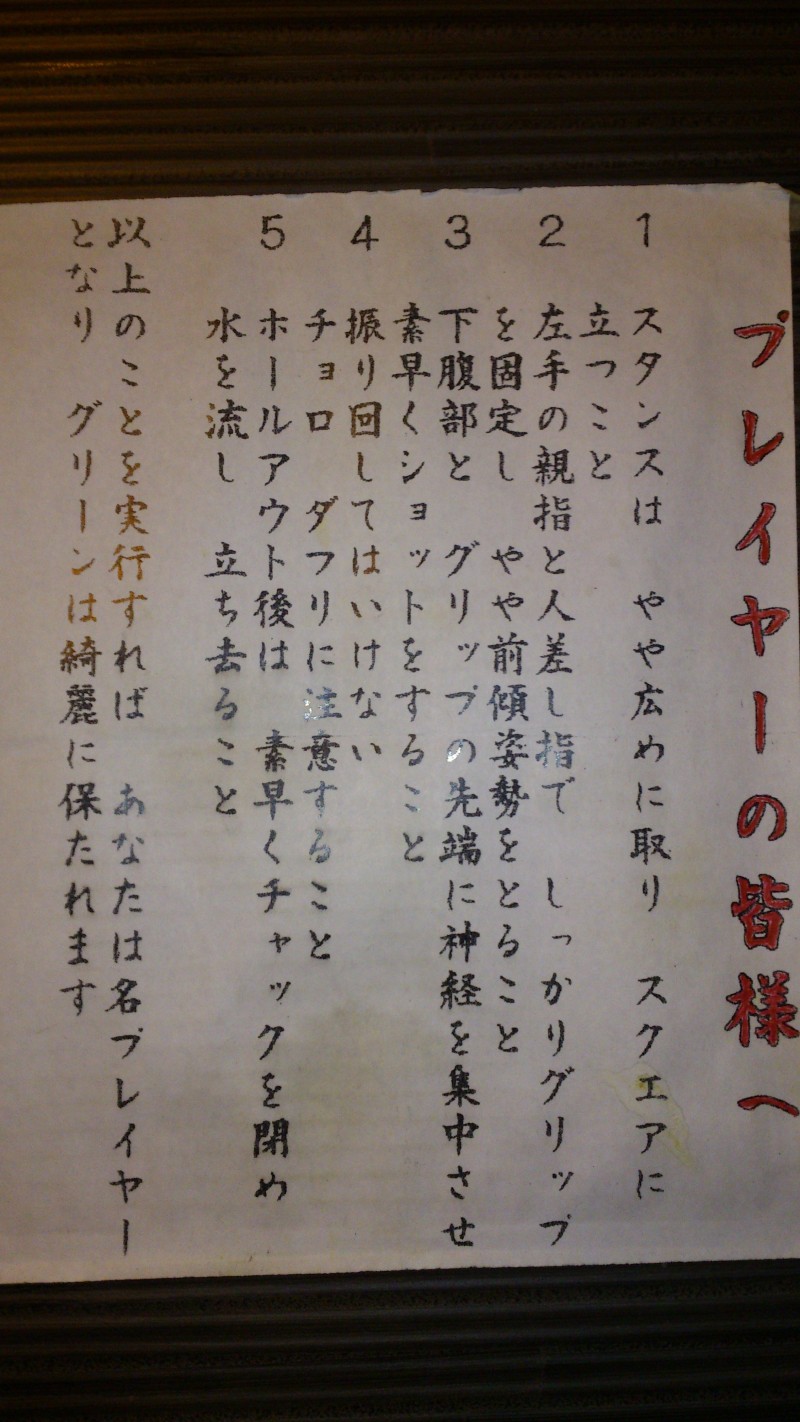 プレイヤーの皆様へ
1 スタンスは やや広めに取り スクエアに
立つこと
2 左手の親指と人差し指で しっかりグリップ
を固定し やや前傾姿勢をとること
3 下腹部と グリップの先端に神経を集中させ
素早くショットをすること
4 振り回してはいけない
チョロ ダフリに注意すること
5 ホールアウト後は 素早くチャックを閉め
水を流し 立ち去ること
以上のことを実行すれば あなたは名プレイヤー
となり グリーンは綺麗に保たれます